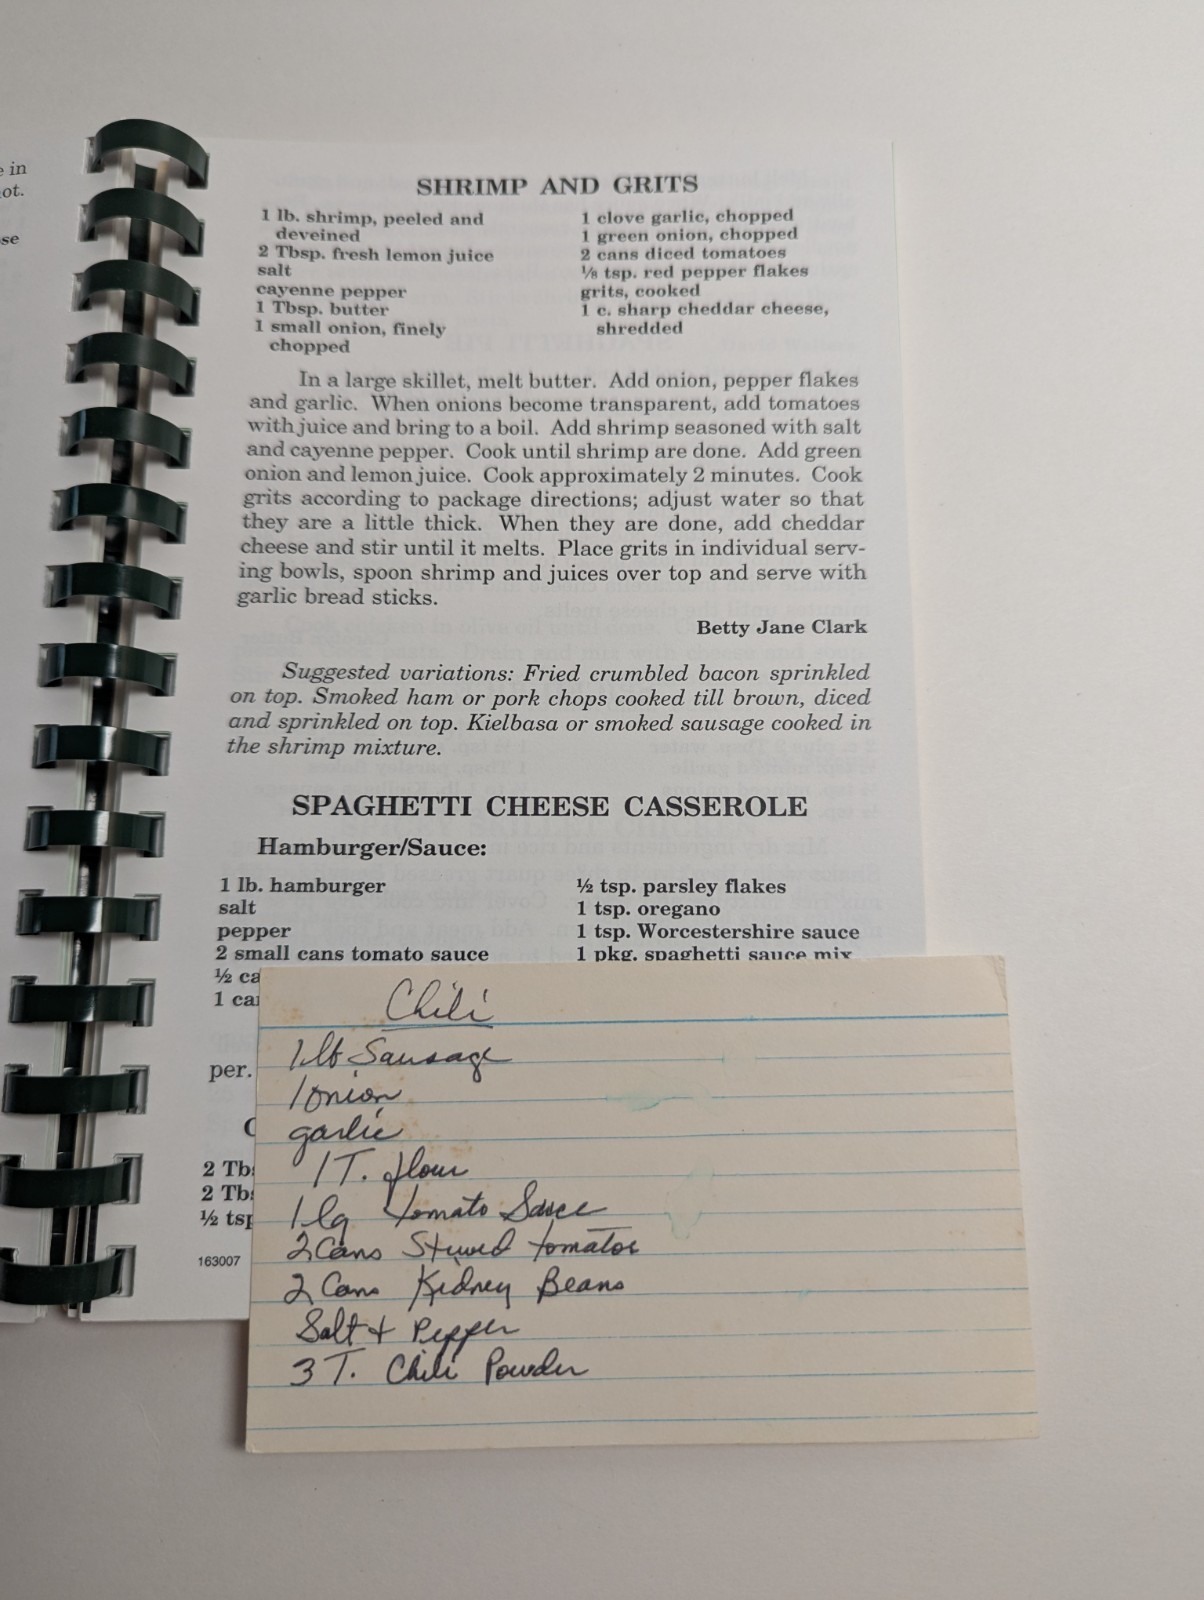 e in
ot.
se
SHRIMP AND GRITS
1 lb. shrimp, peeled and
deveined
2 Tbsp. fresh lemon juice
salt
cayenne pepper
1 Tbsp. butter
1 small onion, finely
chopped
1 clove garlic, chopped
1 green onion, chopped
2 cans diced tomatoes
⅛ tsp. red pepper flakes
grits, cooked
1 c. sharp cheddar cheese,
shredded
In a large skillet, melt butter. Add onion, pepper flakes
and garlic. When onions become transparent, add tomatoes
with juice and bring to a boil. Add shrimp seasoned with salt
and cayenne pepper. Cook until shrimp are done. Add green
onion and lemon juice. Cook approximately 2 minutes. Cook
grits according to package directions; adjust water so that
they are a little thick. When they are done, add cheddar
cheese and stir until it melts. Place grits in individual serv-
ing bowls, spoon shrimp and juices over top and serve with
garlic bread sticks.
Betty Jane Clark
Suggested variations: Fried crumbled bacon sprinkled
on top. Smoked ham or pork chops cooked till brown, diced
and sprinkled on top. Kielbasa or smoked sausage cooked in
the shrimp mixture.
SPAGHETTI CHEESE CASSEROLE
Hamburger/Sauce:
1 lb. hamburger
salt
pepper
2 small cans tomato sauce
½ ca
1 ca
½ tsp. parsley flakes
1 tsp. oregano
1 tsp. Worcestershire sauce
1 pkg. spaghetti sauce mix
per.
2 Tb
2 Tb
½ tsp
163007
Chili
1 lb Sausage
1 onion
garlic
1 T. flour
1 lg tomato Sauce
2 Cans Stewed tomatoes
2 Cans Kidney Beans
Salt + Pepper
3 T. Chili Powder